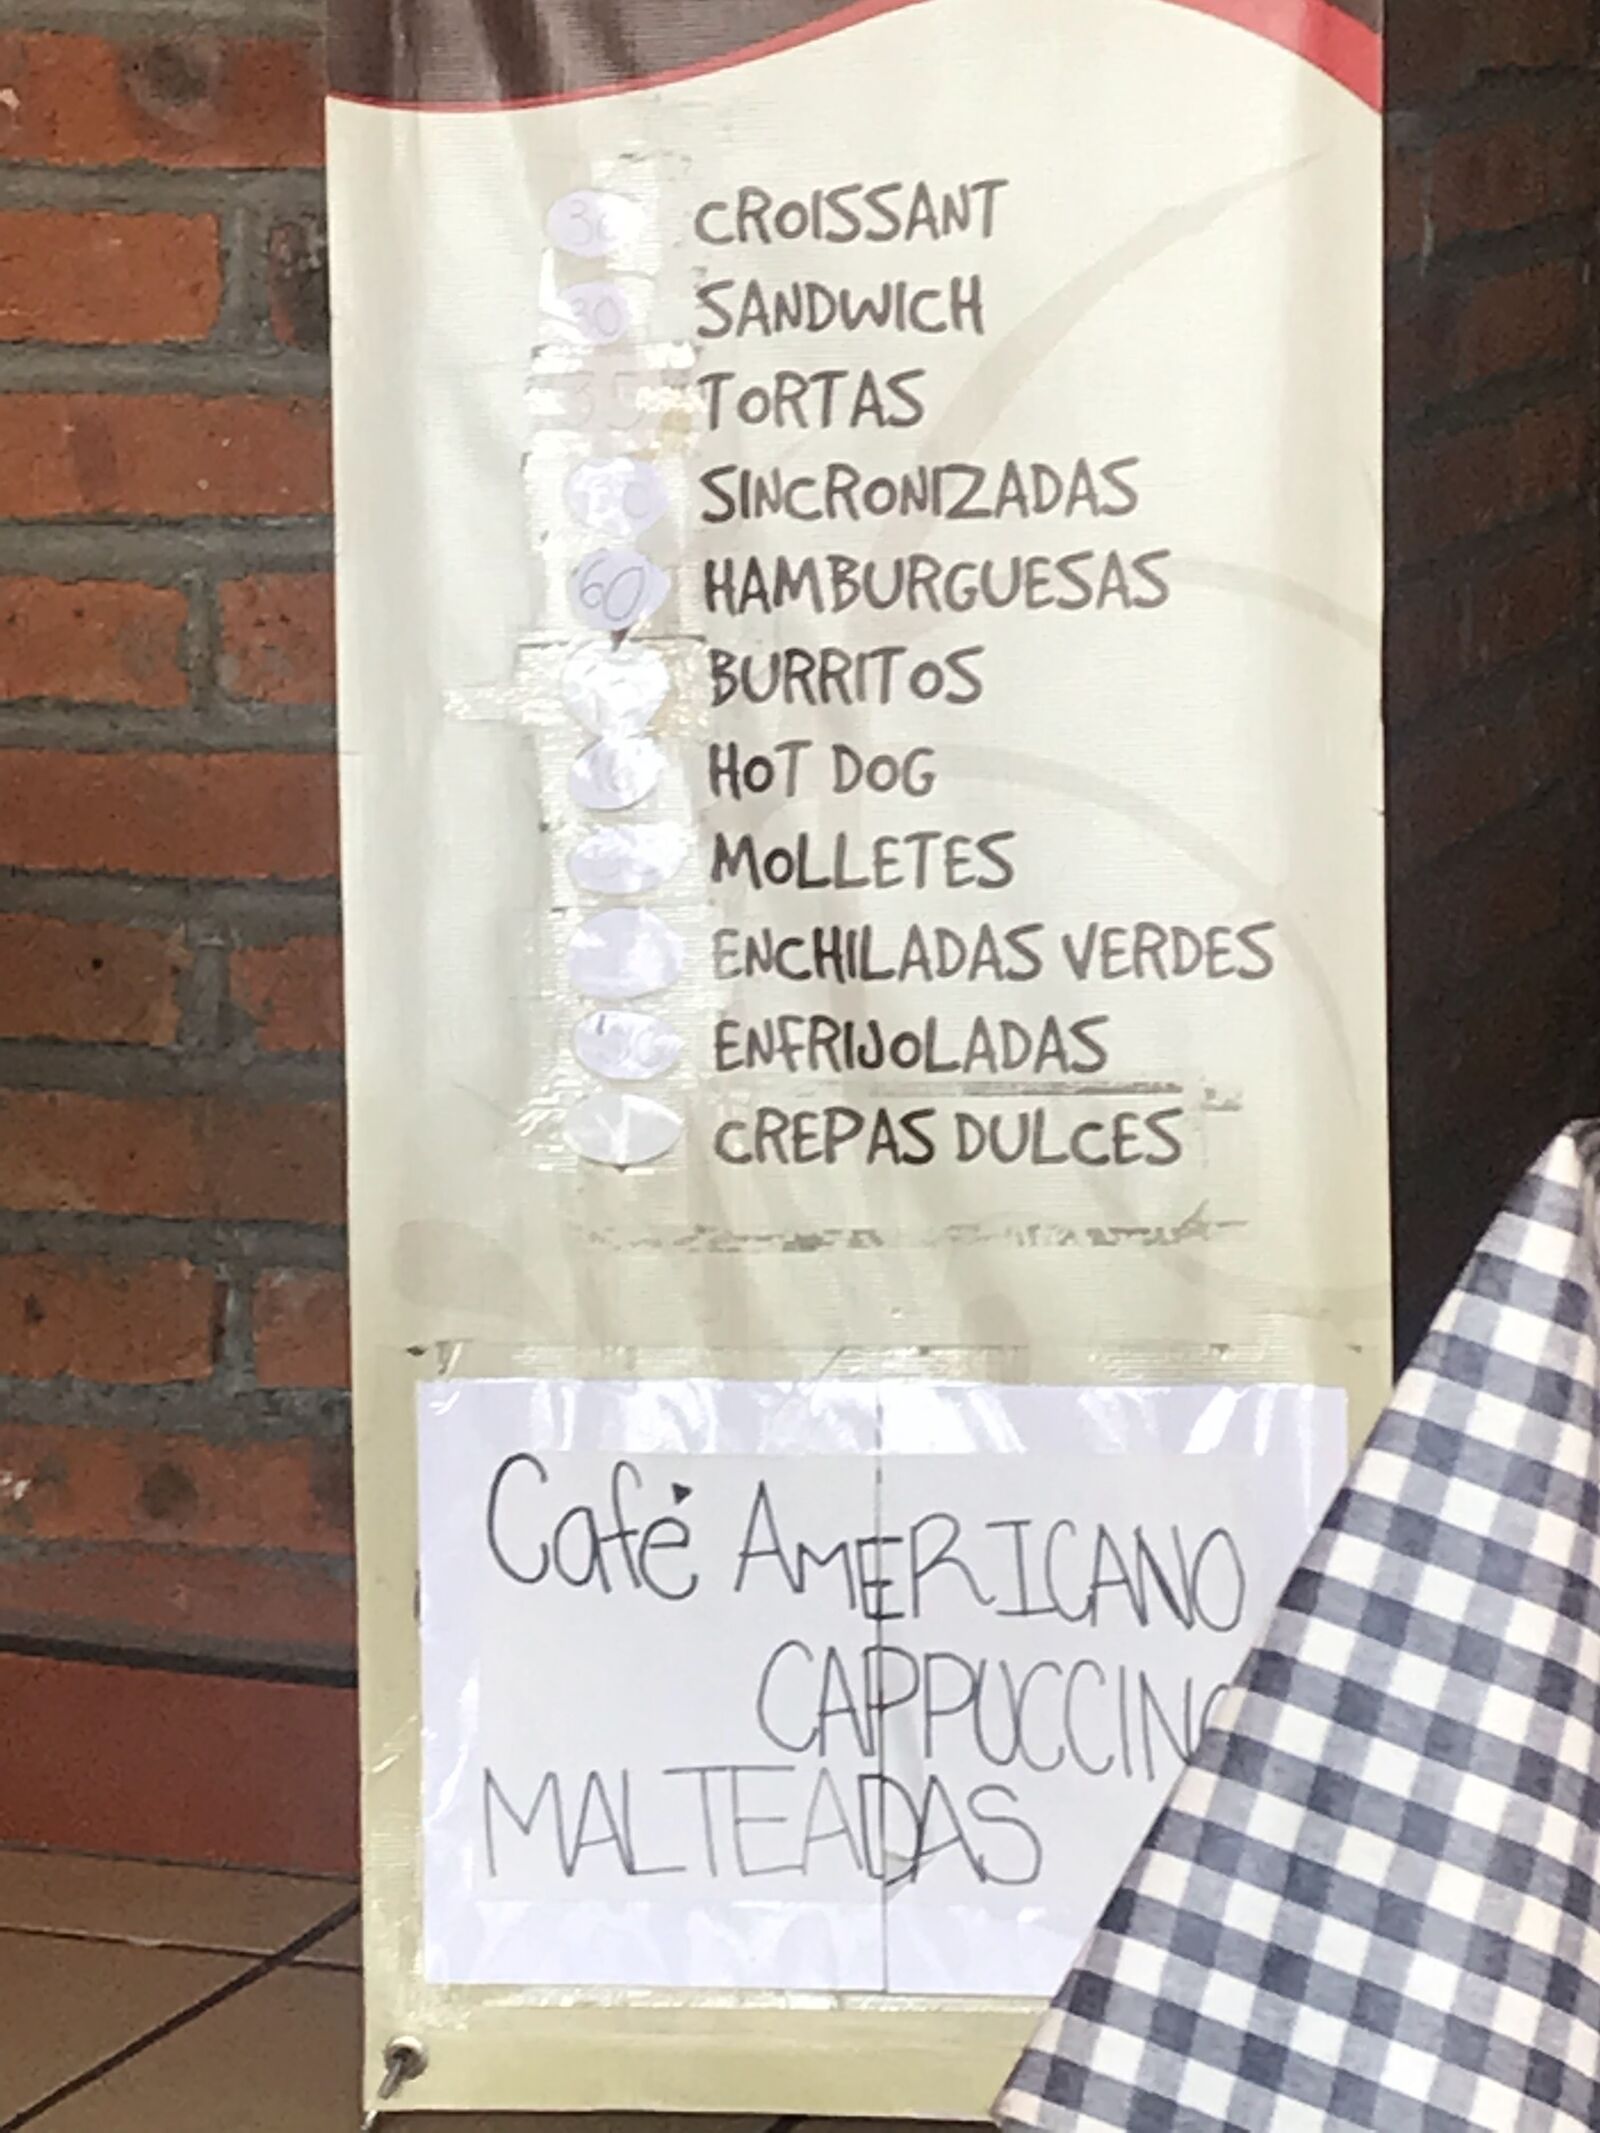 30 CROISSANT
30 SANDWICH
35 TORTAS
SINCRONIZADAS
60 HAMBURGUESAS
BURRITOS
HOT DOG
MOLLETES
ENCHILADAS VERDES
ENFRIJOLADAS
CREPAS DULCES
Café AMERICANO
CAPPUCCINO
MALTEADAS